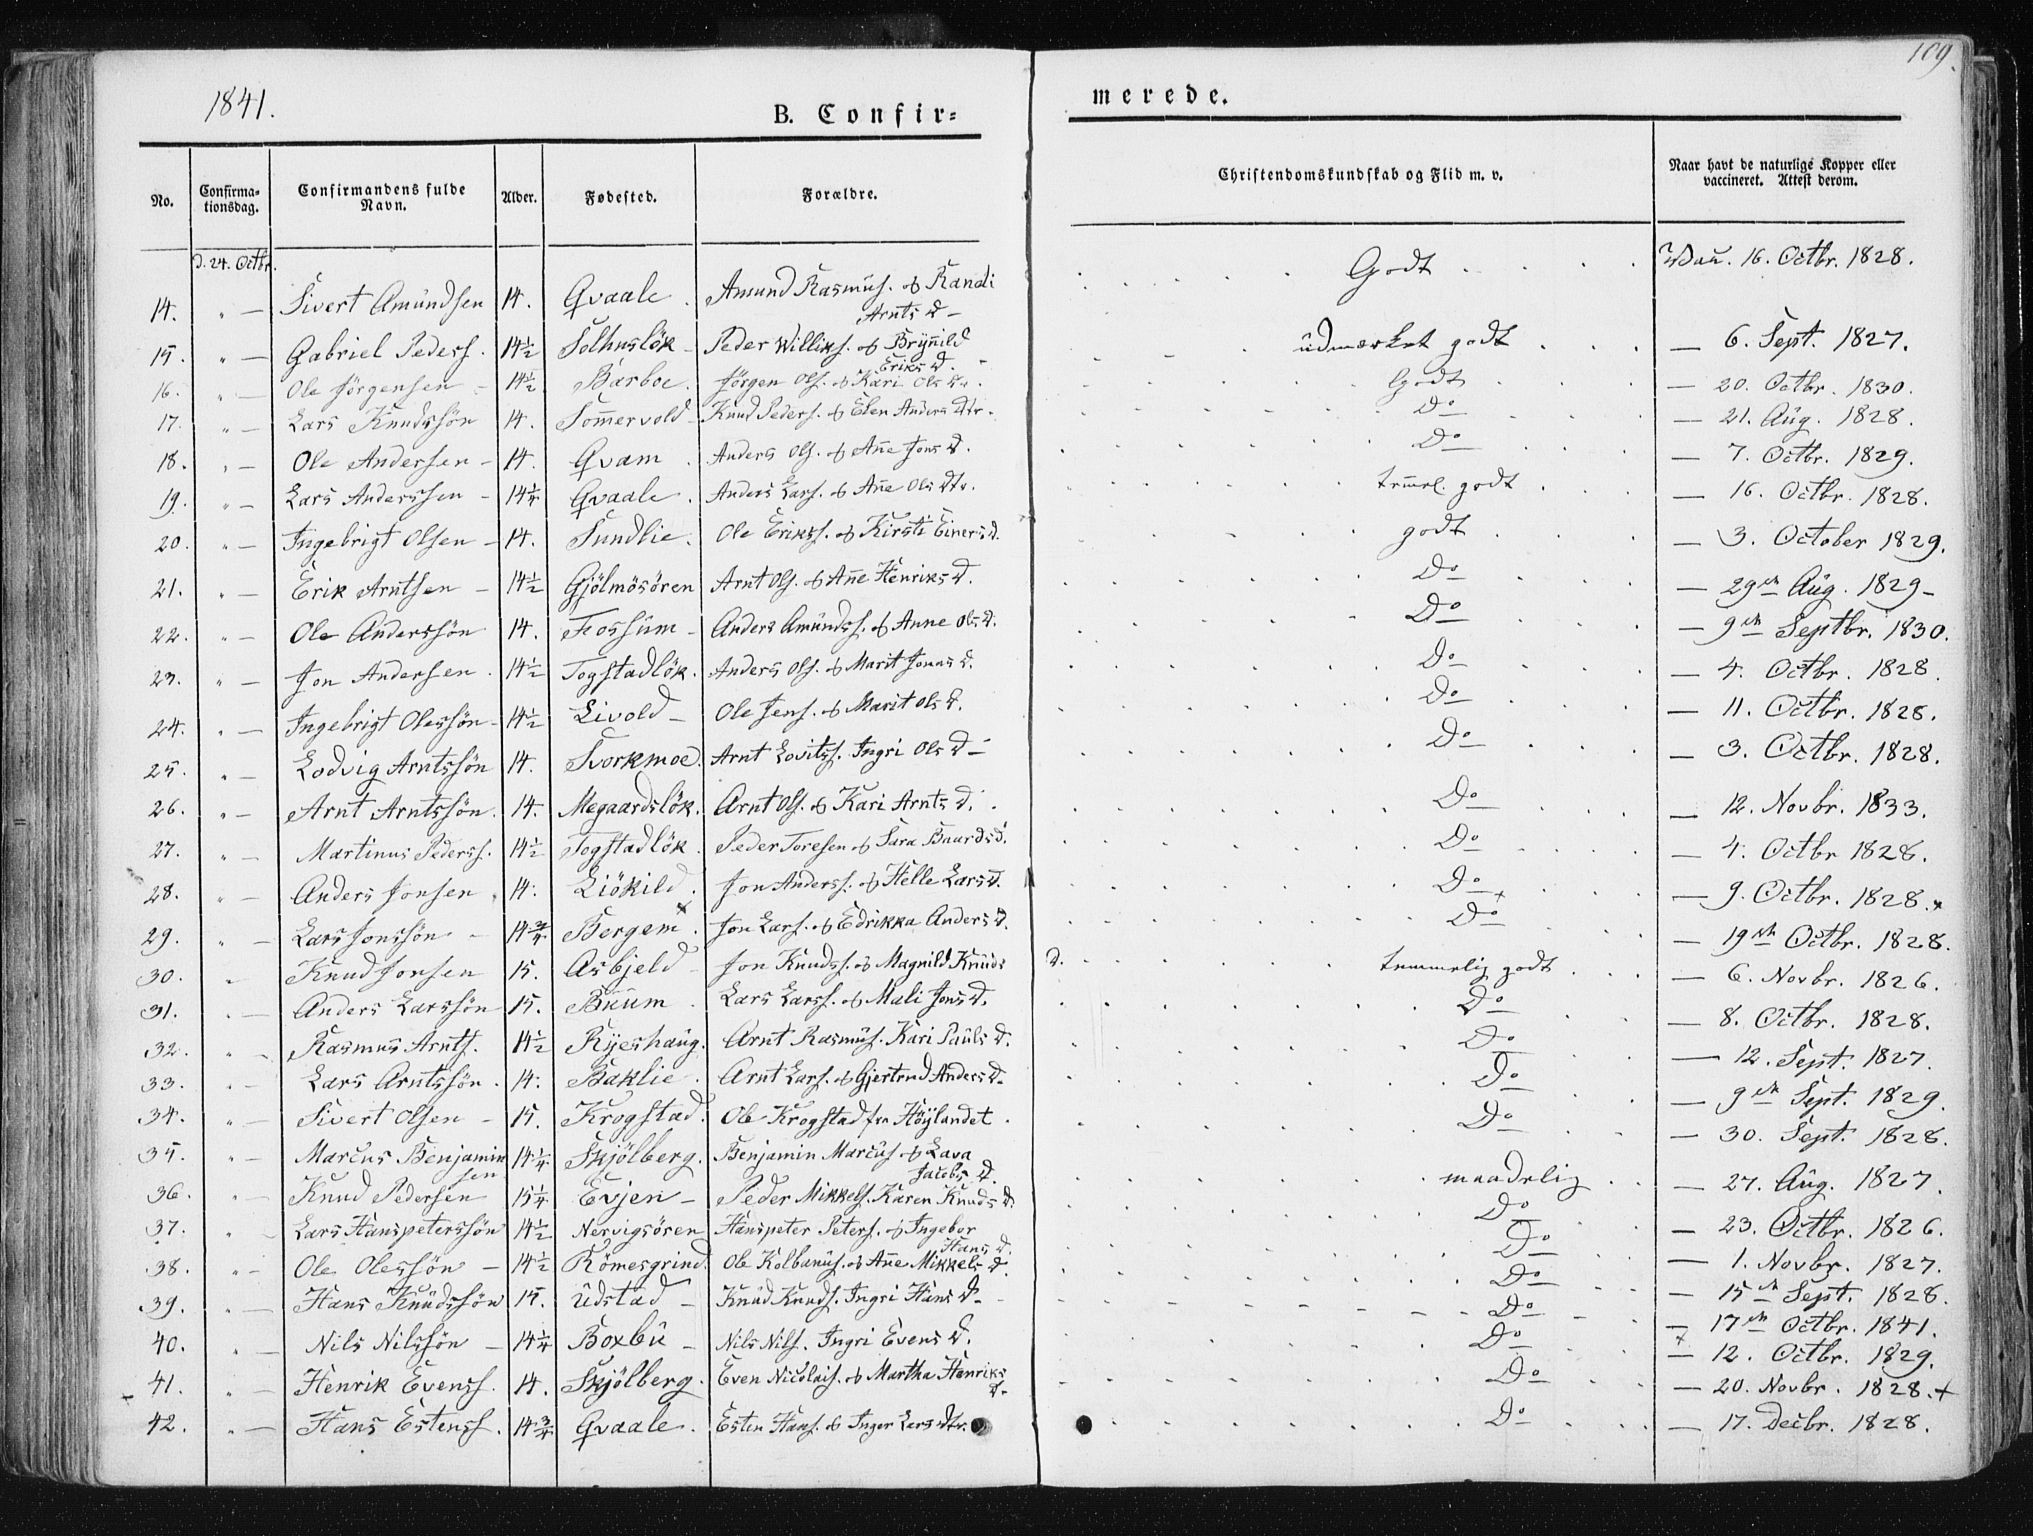 109.
1841.
B. Confir=
merede.
No.
Confirma-
tionsdag.
Confirmandens fulde
Navn.
Alder.
Fødested.
Forældre.
Christendomskundskab og Flid m. v.
Naar havt de naturlige Kopper eller
vaccineret. Attest derom.
d. 24. Octbr.
14. " — Sivert Amundsen 14. Qvaale. Amund Rasmus. of Randi
Arnts D — Godt Vau. 16. Octbr. 1828.
15. " — Gabriel Peders. 14½ Solhuslök — Peder Williks. of Brÿnild
Eriks D. — udmærket godt — 6. Sept. 1827.
16. " — Ole Jörgensen — 14½. Barboe. Jörgen Ols. of Kari Ols Dr. Godt — 20. Octbr. 1830.
17. " — Lars Knudssön 14. Somervold — Knud Peders. of Elen Anders Dtr. Do — 21. Aug. 1828.
18. " — Ole Andersen — 14. Qvam. Anders Ols. of Ane Jons D. Do — 7. Octbr. 1829.
19. " — Lars Anderssen — 14¼ Qvaale. Anders Lars. of Ane Ols Dtr. temel. godt — 16. Octbr. 1828.
20. " — Ingebrigt Olsen — 14. Sundlie. Ole Erikss. of Kirsti Einers D. godt — 3. October 1829.
21. " — Erik Arntsen — 14½ Gjölmösören Arnt Ols. of Ane Henriks D. Do — 29de Aug. 1829 —
22. " — Ole Anderssön 14. Fossum — Anders Amunds. of Anne Ols. D. Do — 9de Septbr. 1830.
23. " — Jon Andersen. 14½ Togstadlök. Anders Ols. of Marit Jonas D. Do — 4. Octbr. 1828.
24. " — Ingebrigt Olessön — 14½ Livold — Ole Jens. of Marit Ols D. Do — 11. Octbr. 1828.
25. " — Lodvig Arntssön 14. Svorkmoe. Arnt Lovitss. Ingri Ols D — Do — 3. Octbr. 1828.
26. " — Arnt Arntssön. 14. Megaardslök. Arnt Ols. of Kari Arnts D. Do — 12. Novbr. 1833.
27. " — Martinus Peders. 14½ Togstadlök. Peder Toresen of Sara Baards D. Do — 4. Octbr 1828.
28. " — Anders Jonsen. 14. Liökild. Jon Anderss. of Helle Lars D. Do — 9. Octbr. 1828. +
29. " — Lars Jonssön — 14¾. Bergem. Jon Lars. of Edrikka Anders D. Do — 19de Octbr. 1828.
30. " Knud Jonsen 15. Asbjeld — Jon Knudss. of Magnild Knuds D. temmelig godt — 6. Novbr. 1826.
31. " — Anders Larssön 15. Buum. Lars Larss. of Mali Jons D. Do — 8. Octbr. 1828.
32. " — Rasmus Arnts. 14½ Ryeshaug. Arnt Rasmus. Kari Pauls D. Do — 12. Sept. 1827.
33. " — Lars Arntssön. 14. Baklie. Arnt Lars. of Gjertrud Anders D. Do — 9de Sept. 1829.
34. " — Sivert Olsen — 15. Krogstad. Ole Krogstad fra Höÿlandet. Do — 30. Sept. 1828.
35. " — Marcus Benjamin
sen 14¼ Skjölberg. Benjamin Marcus of Lava
Jacobs D. maadelig — 27. Aug. 1827.
36. " — Knud Pedersen 15¼ Evjen — Peder Mikkels. Karen Knuds D. Do — 23. Octbr. 1826.
37. " Lars Hanspeterssön 14½ Nervigsören Hanspeter Peters. of Ingebor
Hans D. Do — 1. Novbr. 1827.
38. " — Ole Olessön — 14½ Römesgrind. Ole Kolbanus. of Ane Mikkels D. Do — 15de Sept. 1828.
39. " — Hans Knudssön 15. Udstad — Knud Knuds. Ingri Hans D — Do — 17de Octbr. 1841.
40. " — Nils Nilssön — 14¼ Boxbu — Nils Nils. Ingri Evens D. Do — 12. Octbr. 1829.
41. " — Henrik Evenss. 14. Skjölberg. Even Nicolais. of Martha Henriks
D — Do — 20. Novbr. 1828. +
42. " — Hans Estenss. 14¾ Qvaale. Esten Hans. of Inger Lars Dtr. Do — 17. Decbr. 1828.